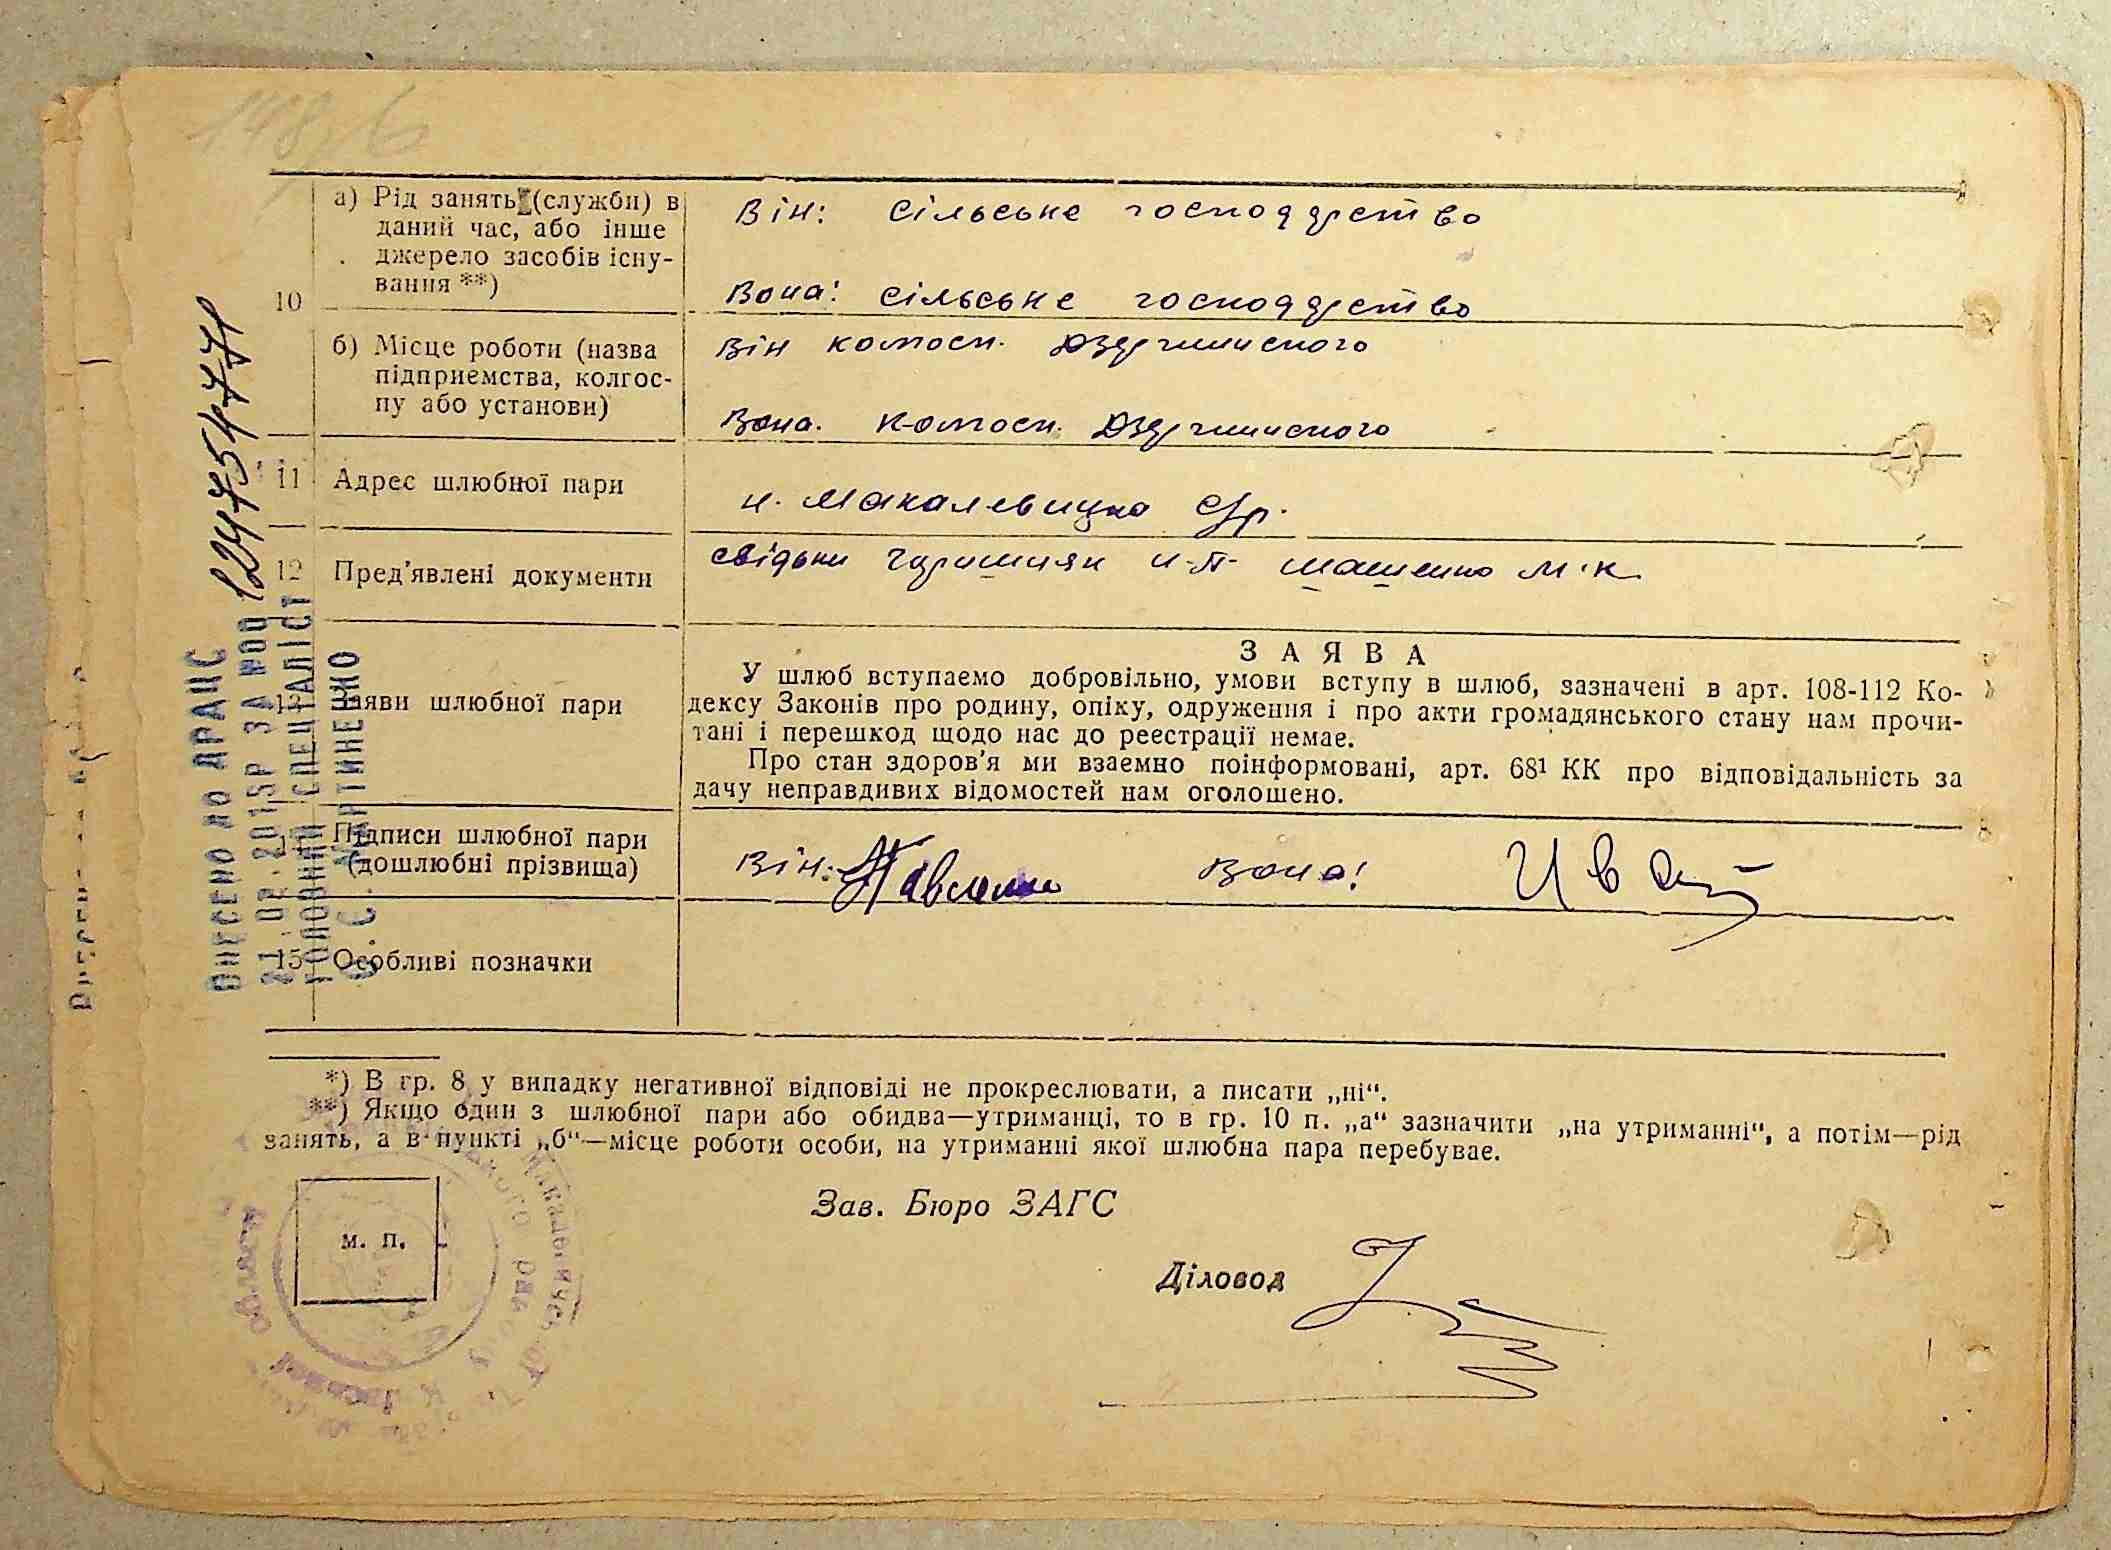 148/6
10
а) Рід занять (служби) в
даний час, або інше
джерело засобів існу-
вання **)
Він: сільське господарство
Вона: сільське господарство
б) Місце роботи (назва
підприємства, колгос-
пу або установи)
Він колгосп. Дзержинського
Вона. колгосп. Дзержинського
11 Адрес шлюбної пари
12 Пред'явлені документи
свідки
13 Заяви шлюбної пари
ЗАЯВА
У шлюб вступаємо добровільно, умови вступу в шлюб, зазначені в арт. 108-112 Ко-
дексу Законів про родину, опіку, одруження і про акти громадянського стану нам прочи-
тані і перешкод щодо нас до реєстрації немає.
Про стан здоров'я ми взаємно поінформовані, арт. 68¹ КК про відповідальність за
дачу неправдивих відомостей нам оголошено.
14 Підписи шлюбної пари
(дошлюбні прізвища)
Він: Вона:
15 Особливі позначки
*) В гр. 8 у випадку негативної відповіді не прокреслювати, а писати „ні“.
**) Якщо один з шлюбної пари або обидва—утриманці, то в гр. 10 п. „а“ зазначити „на утриманні“, а потім—рід
занять, а в пункті „б“—місце роботи особи, на утриманні якої шлюбна пара перебуває.
Зав. Бюро ЗАГС
м. п.
Діловод
Внесено до ДРАЦС
21.02.2015Р ЗА №00124754771
ГОЛОВНИЙ СПЕЦІАЛІСТ
С.С. МАРТИНЕНКО